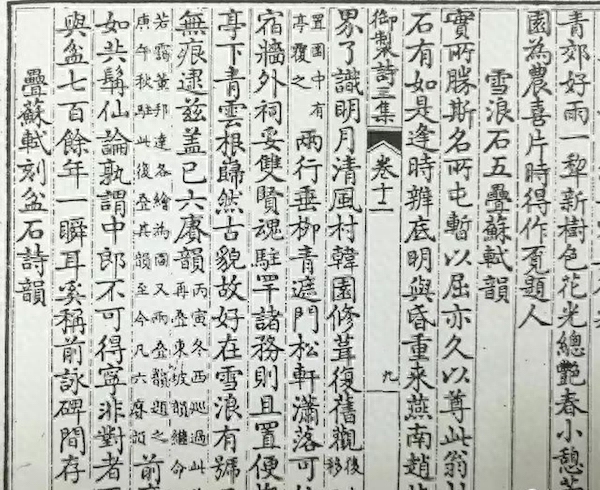 青郊好雨一犂新樹色花光總艷春小憩
園為農喜片時得作覔題人
雪浪石五疊蘇軾韻
實所勝斯名所屯暫以屈亦久以尊此翁
石有如是逢時辨底明與昏重来燕南趙
御製詩三集 卷十二 九
界了識明月清風村韓園修葺復舊觀後
移
置園中有
亭覆之
兩行垂栁青遮門松軒瀟落可
宿牆外祠妥雙賢魂駐罕諸務則且置便
亭下青雲根巋然古貌故好在雪浪有號
無痕逮兹盖已六賡韻
丙寅冬西廵過此
再疊東坡韻繼命
若靄董邦達各繪為圖又兩疊韻題之
庚午秋駐此復疊其韻至今凡六賡韻
前
如共髯仙論孰謂中郎不可得寧非對者
與盆七百餘年一瞬耳奚稱前詠碑間存
疊蘇軾刻盆石詩韻